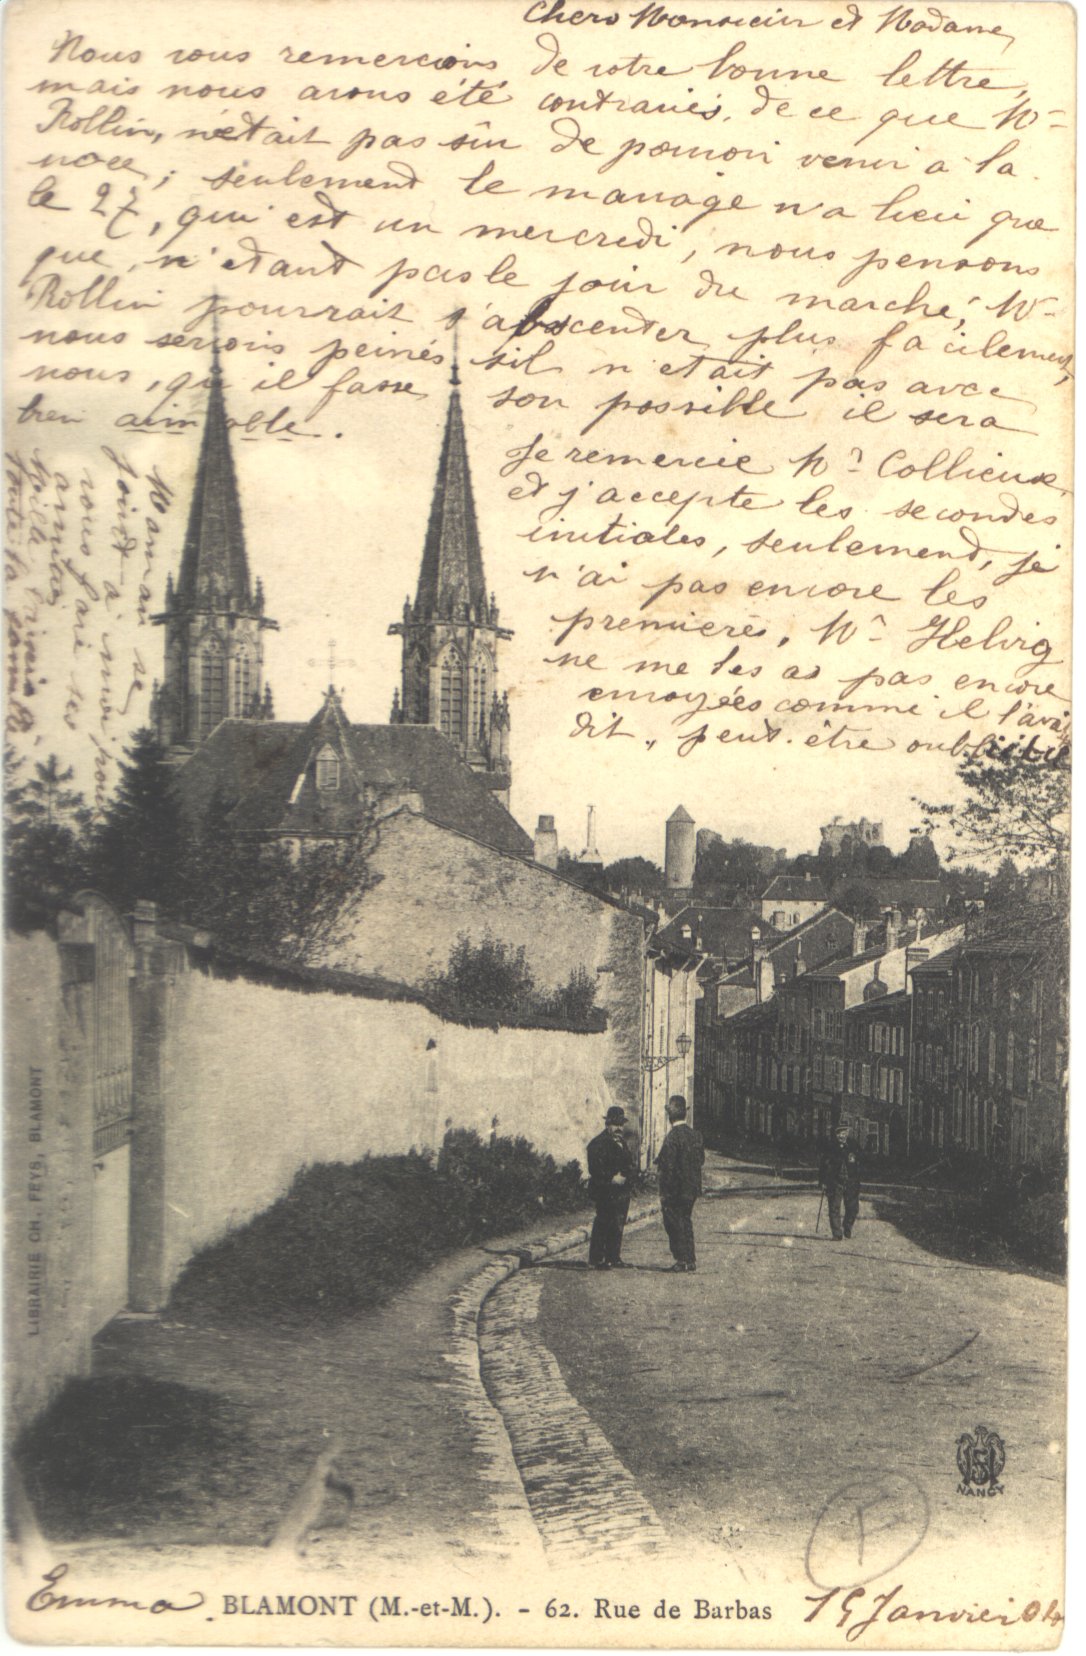 Chers Monsieur et Madame,
Nous vous remercions de votre bonne lettre,
mais nous avons été contrariés, de ce que Mr
Rollin, n'était pas sûr de pouvoir venir à la
noce; seulement le mariage n'a lieu que
le 27, qui est un mercredi, nous pensons
que, n'étant pas le jour du marché, Mr
Rollin pourrait s'abscenter plus facilement,
nous serions peinés sil n'était pas avec
nous, qu'il fasse son possible il sera
bien aimable.
Je remercie Mr Collieux,
et j'accepte les secondes
initiales, seulement, je
n'ai pas encore les
premières, Mr Helvig
ne me les as pas encore
envoyées comme il l'avait
dit, peut-être oublie
Maman se
joint à moi pour
vous faire ses
amitiés
toute la famille
LIBRAIRIE CH. FEYS, BLAMONT
NANCY
T
Emma
BLAMONT (M.-et-M.). - 62. Rue de Barbas
15 Janvier 04